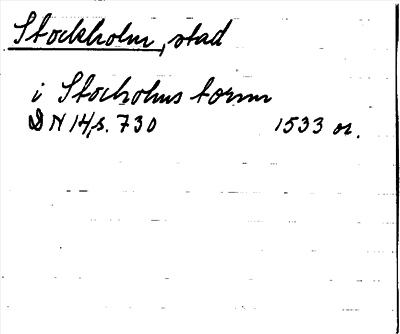 Stockholm, stad
i Stocholms tornn
DN 14, s. 730 1533 or.